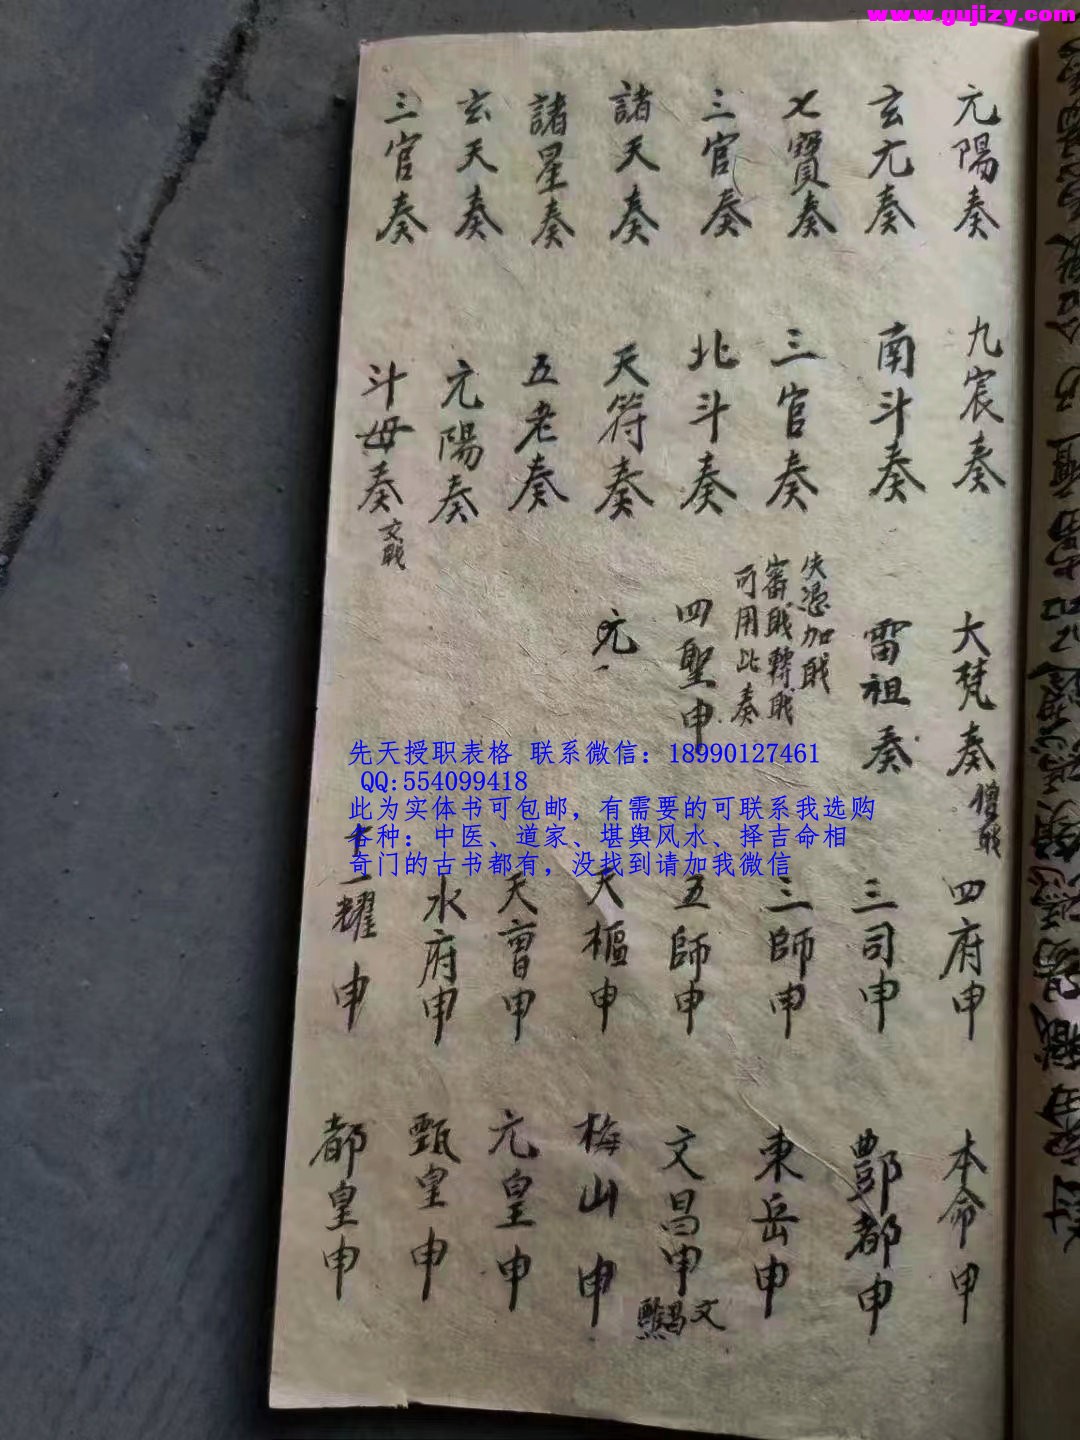 www.gujizy.com
元陽奏
玄亢奏
七寶奏
三官奏
諸天奏
諸星奏
玄天奏
三官奏
九宸奏
南斗奏
三官奏
北斗奏
天符奏
五老奏
元陽奏
斗母奏
大梵奏
雷祖奏
可用此奏
四聖申
先天授职表格 联系微信：18990127461
QQ:554099418
此为实体书可包邮，有需要的可联系我选购
各种：中医、道家、堪舆风水、择吉命相
奇门的古书都有，没找到请加我微信
四府申
三司申
三師申
五師申
天樞申
天曹申
水府申
十一耀申
本命申
酆都申
東岳申
文昌申
梅山申
元皇申
甄皇申
都皇申